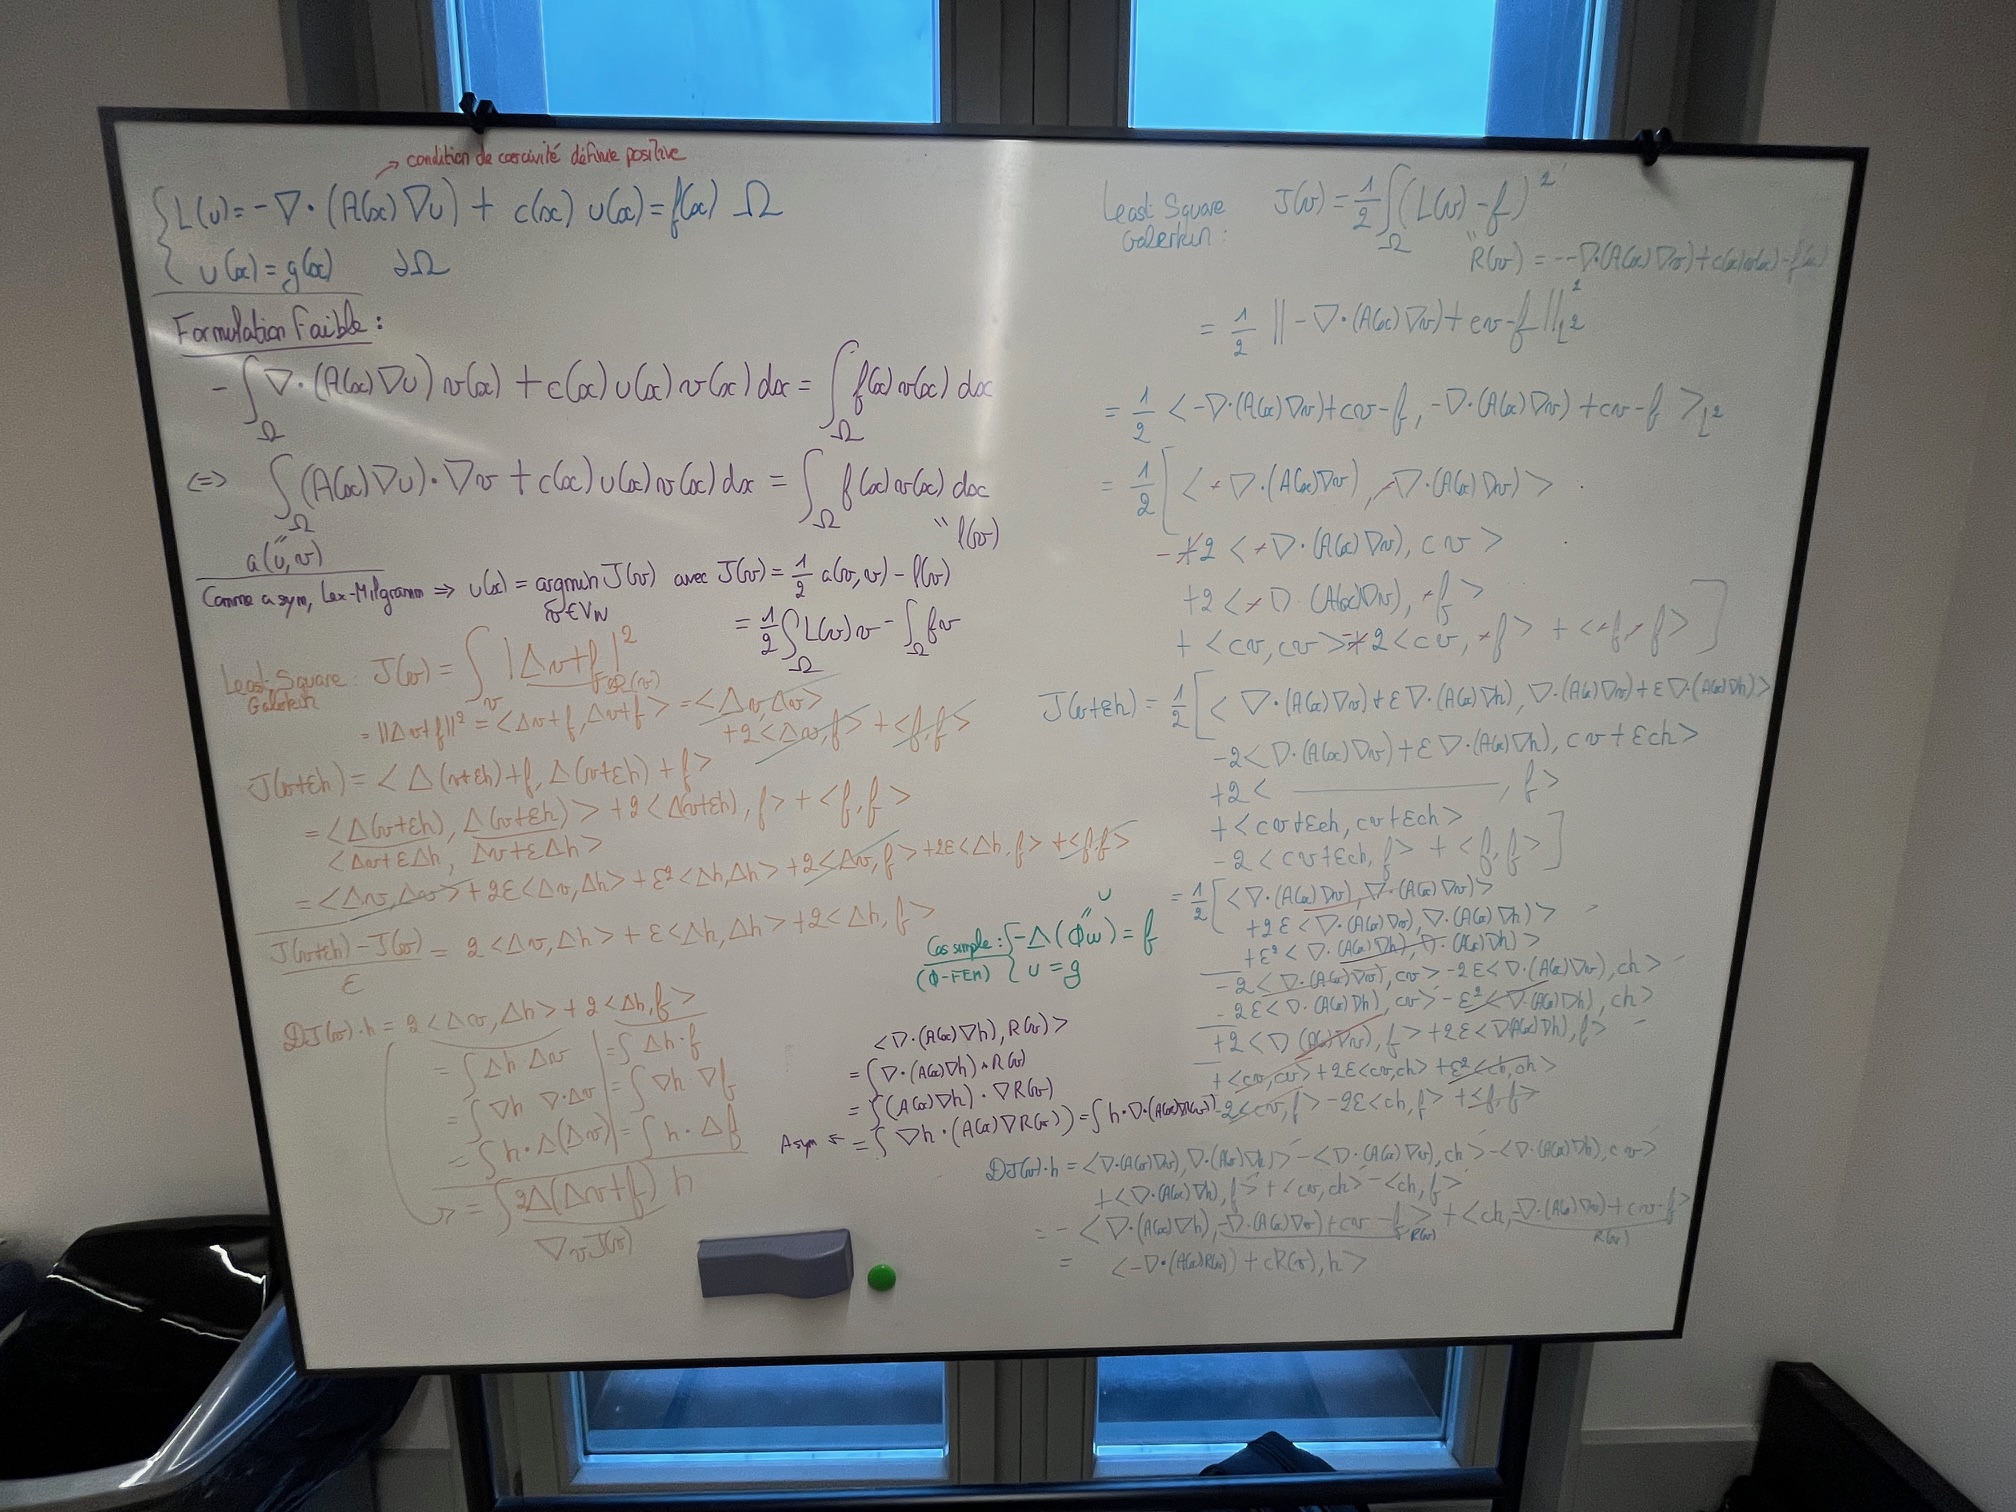 → condition de coercivité définie positive
{ L(u) = -∇·(A(x)∇u) + c(x) u(x) = f(x) Ω
u(x) = g(x) ∂Ω
Formulation Faible :
- ∫_Ω ∇·(A(x)∇u) v(x) + c(x) u(x) v(x) dx = ∫_Ω f(x) v(x) dx
<=> ∫_Ω (A(x)∇u)·∇v + c(x) u(x) v(x) dx = ∫_Ω f(x) v(x) dx
" a(u,v) " l(v)
Comme a sym, Lax-Milgramm => u(x) = argmin J(v) avec J(v) = 1/2 a(v,v) - l(v)
v∈V_N
= 1/2 ∫_Ω L(v)v - ∫_Ω fv
Least-Square Galerkin : J(v) = ∫_v |Δv+f|²
= ||Δv+f||² = <Δv+f, Δv+f> = <Δv, Δv>
+2<Δv, f> + <f, f>
J(v+εh) = <Δ(v+εh)+f, Δ(v+εh)+f>
= <Δ(v+εh), Δ(v+εh)> + 2<Δ(v+εh), f> + <f, f>
<Δv+εΔh, Δv+εΔh>
= <Δv, Δv> + 2ε<Δv, Δh> + ε²<Δh, Δh> + 2<Δv, f> + 2ε<Δh, f> + <f, f>
(J(v+εh) - J(v))/ε = 2<Δv, Δh> + ε<Δh, Δh> + 2<Δh, f>
DJ(v)·h = 2<Δv, Δh> + 2<Δh, f>
= ∫ Δh Δv | = ∫ Δh·f
= ∫ ∇h ∇·Δv | = ∫ ∇h ∇f
= ∫ h·Δ(Δv) | = ∫ h·Δf
→ = ∫ 2Δ(Δv+f) h
∇_v J(v)
Cas simple : { -Δ(ϕw) = f
" u
(ϕ-FEM) u = g
<∇·(A(x)∇h), R(v)>
= ∫ ∇·(A(x)∇h) × R(v)
= ∫ (A(x)∇h)·∇R(v)
A sym = ∫ ∇h·(A(x)∇R(v)) = ∫ h·∇·(A(x)∇R(v))
Least-Square Galerkin : J(v) = 1/2 ∫_Ω (L(v) - f)²
" R(v) = -∇·(A(x)∇v) + c(x)v(x) - f(x)
= 1/2 || -∇·(A(x)∇v) + cv - f ||²_L²
= 1/2 < -∇·(A(x)∇v) + cv - f, -∇·(A(x)∇v) + cv - f >_L²
= 1/2 [ < -∇·(A(x)∇v), -∇·(A(x)∇v) >
- 2 < ∇·(A(x)∇v), cv >
+2 < ∇·(A(x)∇v), f >
+ <cv, cv> - 2 <cv, f> + <f, f> ]
J(v+εh) = 1/2 [ < ∇·(A(x)∇v) + ε∇·(A(x)∇h), ∇·(A(x)∇v) + ε∇·(A(x)∇h) >
-2 < ∇·(A(x)∇v) + ε∇·(A(x)∇h), cv + εch >
+2 < ————, f >
+ <cv+εch, cv+εch>
- 2 <cv+εch, f> + <f, f> ]
= 1/2 [ < ∇·(A(x)∇v), ∇·(A(x)∇v) >
+2ε < ∇·(A(x)∇v), ∇·(A(x)∇h) >
+ε² < ∇·(A(x)∇h), ∇·(A(x)∇h) >
-2 < ∇·(A(x)∇v), cv > - 2ε < ∇·(A(x)∇v), ch >
- 2ε < ∇·(A(x)∇h), cv > - ε² < ∇·(A(x)∇h), ch >
+2 < ∇(A(x)∇v), f > + 2ε < ∇(A(x)∇h), f >
+ <cv, cv> + 2ε<cv, ch> + ε²<ch, ch>
-2<cv, f> - 2ε<ch, f> + <f, f>
DJ(v)·h = <∇·(A(x)∇v), ∇·(A(x)∇h)> - <∇·(A(x)∇v), ch> - <∇·(A(x)∇h), cv>
+ <∇·(A(x)∇h), f> + <cv, ch> - <ch, f>
= - <∇·(A(x)∇h), -∇·(A(x)∇v) + cv - f> + <ch, -∇·(A(x)∇v) + cv - f>
R(v) R(v)
= < -∇·(A(x)R(v)) + cR(v), h >